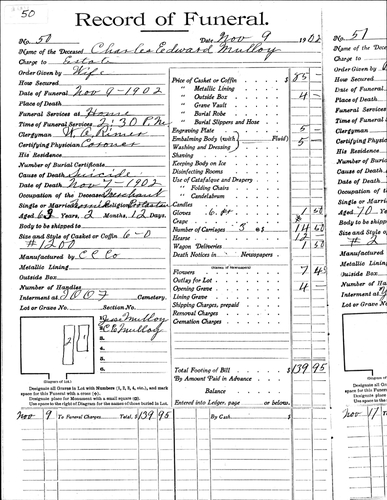 50
Record of Funeral.
No. 50 Date Nov 9 1902
Name of the Deceased Charles Edward Mulloy
Charge to Estate
Order Given by Wife
How Secured
Date of Funeral Nov 9-1902
Place of Death
Funeral Services at Home
Time of Funeral Services 2:30 P.M.
Clergyman W. A. Rimer
Certifying Physician Coroner
His Residence
Number of Burial Certificate
Cause of Death Suicide
Date of Death Nov 7-1902
Occupation of the Deceased Merchant
Single or Married Religion
Aged 63 Years, 2 Months, 12 Days
Body to be shipped to
Size and Style of Casket or Coffin 6-0
#1200
Manufactured by C C Co
Metallic Lining
Outside Box
Number of Handles
Interment at I O O F Cemetery.
Lot or Grave No. Section No.
1. Jesse Mulloy
2. C E Mulloy
3.
4.
5.
6.
2 1
(Diagram of Lot.)
Designate all Graves in Lot with Numbers (1, 2, 3, 4, etc.), and mark
space for this Funeral with a cross (+).
Designate place for Monument with a small square (□).
Use space to the right of Diagram for the names of those buried in Lot.
Price of Casket or Coffin $ 85 —
" Metallic Lining
" Outside Box 4 —
" Grave Vault
" Burial Robe
" Burial Slippers and Hose
Engraving Plate 5 —
Embalming Body (with Fluid) 5 —
Washing and Dressing
Shaving
Keeping Body on Ice
Disinfecting Rooms
Use of Catafalque and Drapery
" Folding Chairs
" Candelabrum
Candles
Gloves 6 pr 1 50
Crape
Number of Carriages 5 @ $ 14 60
Hearse 12
Wagon Deliveries 1 50
Death Notices in Newspapers
Flowers 7 45
Outlay for Lot
Opening Grave 4 —
Lining Grave
Shipping Charges, prepaid
Removal Charges
Cremation Charges
Total Footing of Bill $ 139 95
By Amount Paid in Advance
Balance
Entered into Ledger, page or below.
Nov 9 To Funeral Charges Total, $ 139 95 By Cash $
51
No. 51
Name of the
Charge to
Order Given
How Secured
Date of Funeral
Place of Death
Funeral Services
Time of Funeral
Clergyman
Certifying
His Residence
Number of
Cause of Death
Date of Death
Occupation
Single or
Aged 70
Body to be
Size and
#2
Manufactured
Metallic
Outside Box
Number of
Interment
Lot or Grave
(Diagram
Nov 11